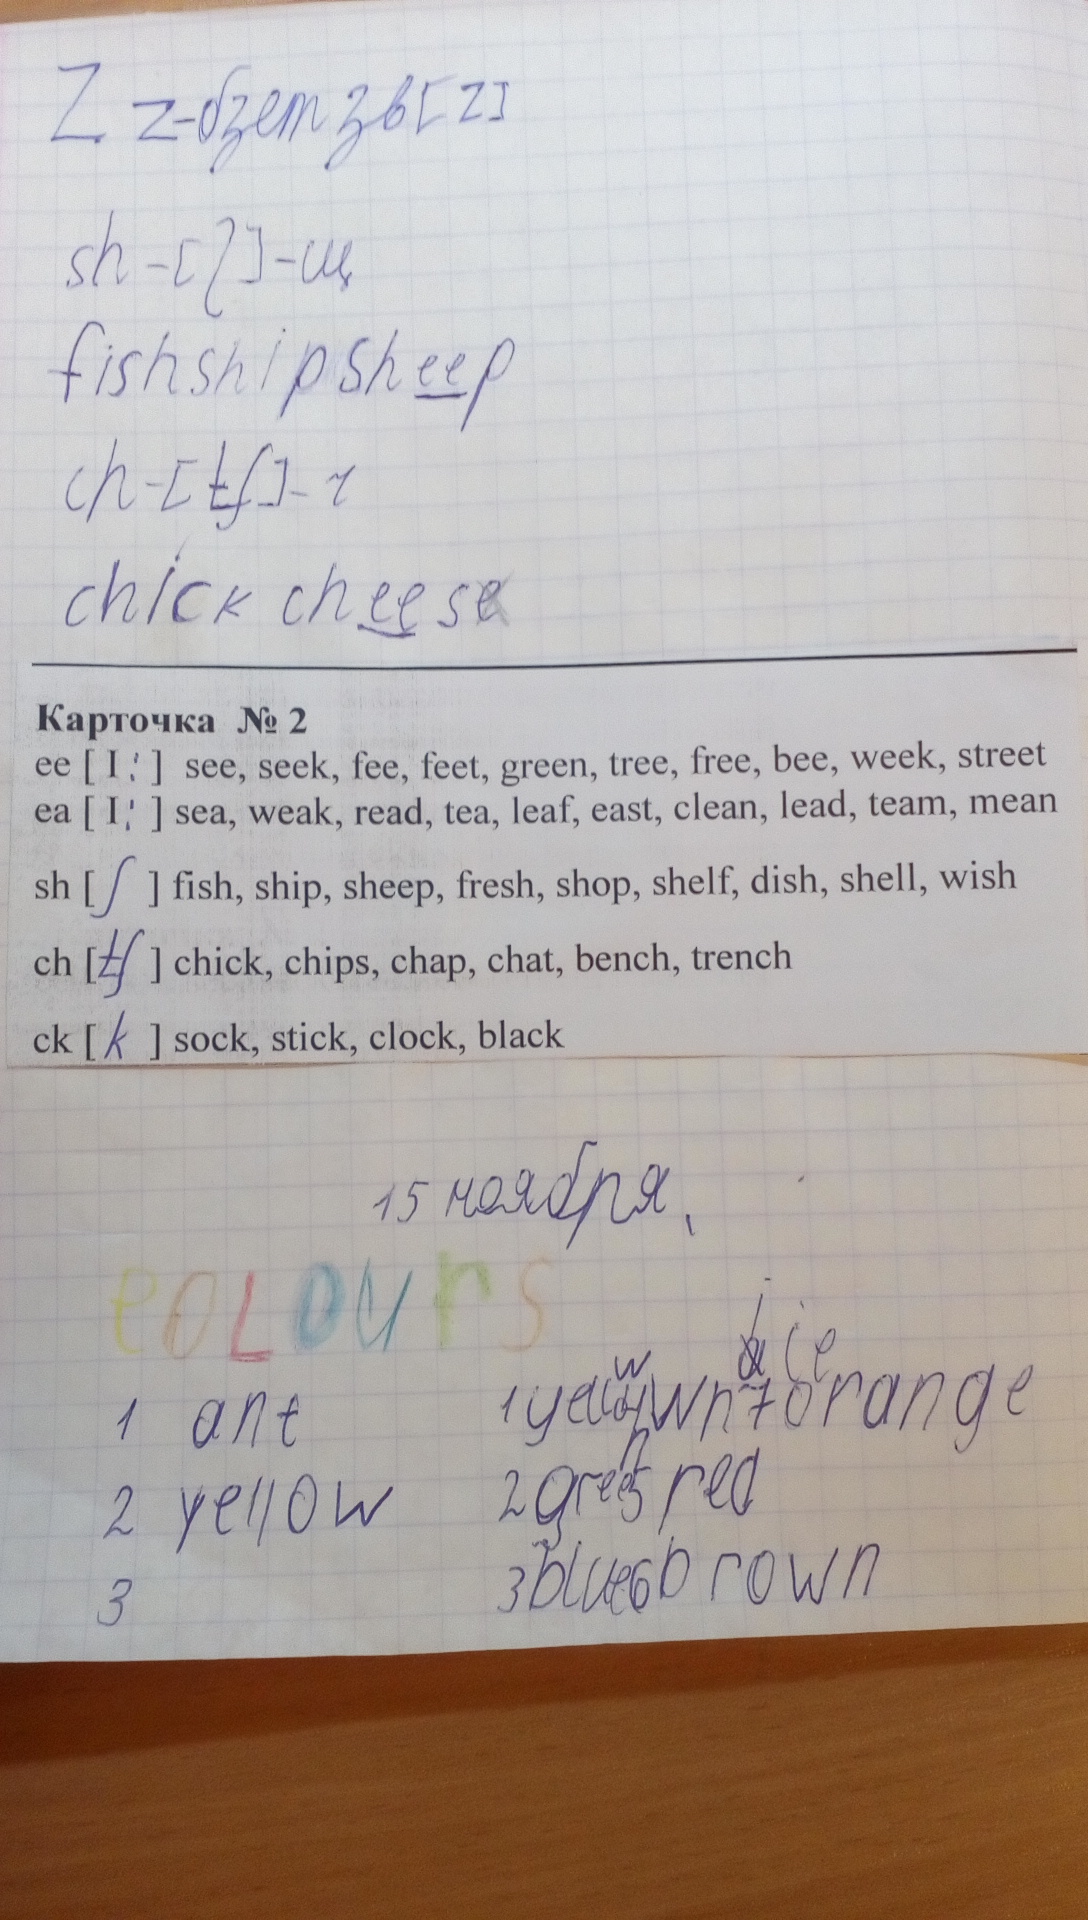 Z z-бзет зв[z]
sh-[ʃ]-щ
fish ship sheep
ch-[tʃ]-ч
chick cheese
Карточка № 2
ee [ I: ] see, seek, fee, feet, green, tree, free, bee, week, street
ea [ I: ] sea, weak, read, tea, leaf, east, clean, lead, team, mean
sh [ʃ ] fish, ship, sheep, fresh, shop, shelf, dish, shell, wish
ch [tʃ ] chick, chips, chap, chat, bench, trench
ck [k ] sock, stick, clock, black
15 ноября.
COLOURS
1 ant
2 yellow
3
orange
2 green 5 red
3 blue 6 brown